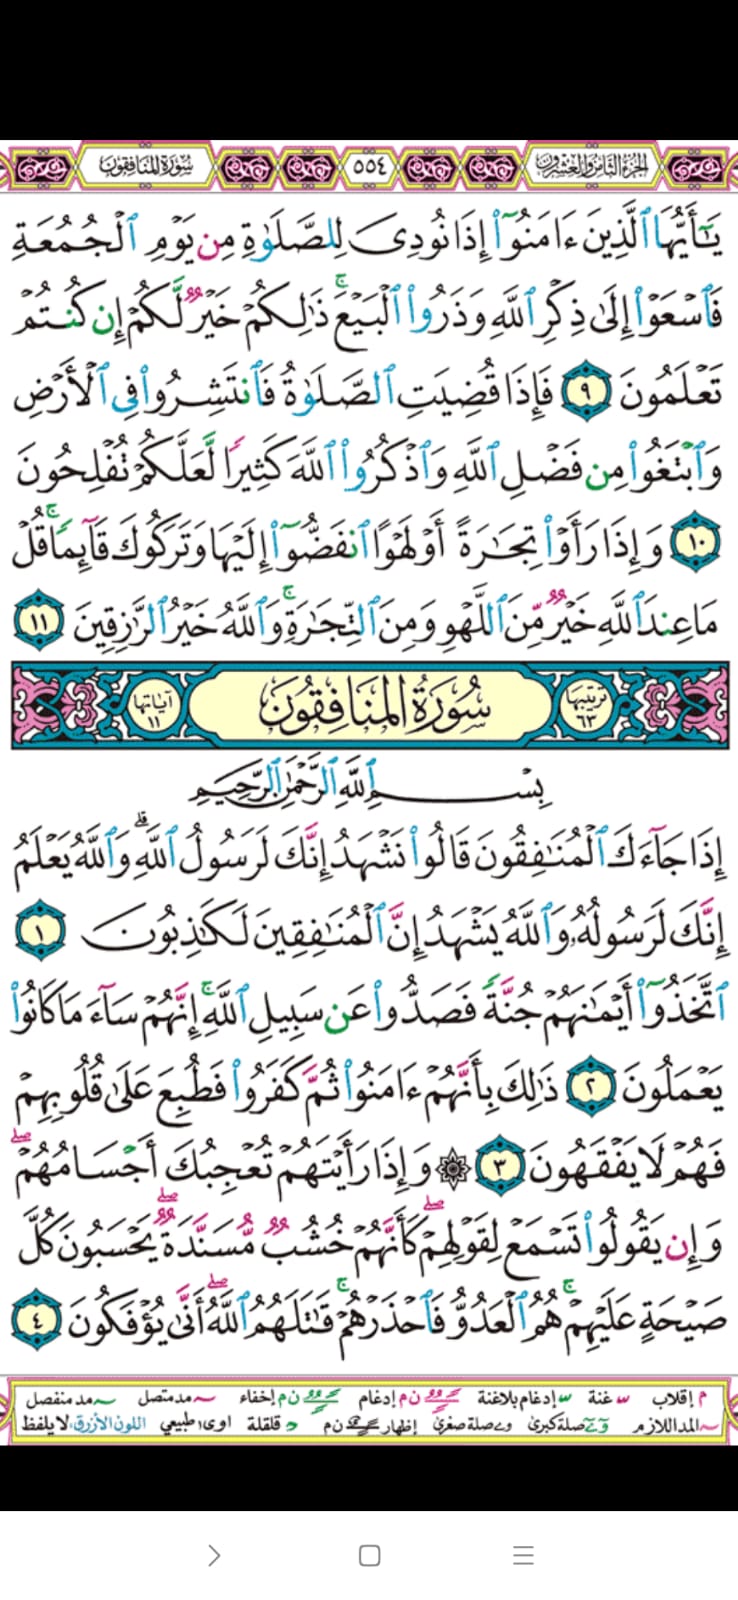 الجزء الثامن والعشرون ٥٥٤ سورة المنافقون
يَٰٓأَيُّهَا ٱلَّذِينَ ءَامَنُوٓا۟ إِذَا نُودِىَ لِلصَّلَوٰةِ مِن يَوْمِ ٱلْجُمُعَةِ
فَٱسْعَوْا۟ إِلَىٰ ذِكْرِ ٱللَّهِ وَذَرُوا۟ ٱلْبَيْعَ ۚ ذَٰلِكُمْ خَيْرٌ لَّكُمْ إِن كُنتُمْ
تَعْلَمُونَ ٩ فَإِذَا قُضِيَتِ ٱلصَّلَوٰةُ فَٱنتَشِرُوا۟ فِى ٱلْأَرْضِ
وَٱبْتَغُوا۟ مِن فَضْلِ ٱللَّهِ وَٱذْكُرُوا۟ ٱللَّهَ كَثِيرًا لَّعَلَّكُمْ تُفْلِحُونَ
١٠ وَإِذَا رَأَوْا۟ تِجَٰرَةً أَوْ لَهْوًا ٱنفَضُّوٓا۟ إِلَيْهَا وَتَرَكُوكَ قَآئِمًا ۚ قُلْ
مَا عِندَ ٱللَّهِ خَيْرٌ مِّنَ ٱللَّهْوِ وَمِنَ ٱلتِّجَٰرَةِ ۚ وَٱللَّهُ خَيْرُ ٱلرَّٰزِقِينَ ١١
ترتيبها ٦٣ سُورَةُ المنَافِقُون آياتها ١١
بِسْمِ ٱللَّهِ ٱلرَّحْمَٰنِ ٱلرَّحِيمِ
إِذَا جَآءَكَ ٱلْمُنَٰفِقُونَ قَالُوا۟ نَشْهَدُ إِنَّكَ لَرَسُولُ ٱللَّهِ ۗ وَٱللَّهُ يَعْلَمُ
إِنَّكَ لَرَسُولُهُۥ وَٱللَّهُ يَشْهَدُ إِنَّ ٱلْمُنَٰفِقِينَ لَكَٰذِبُونَ ١
ٱتَّخَذُوٓا۟ أَيْمَٰنَهُمْ جُنَّةً فَصَدُّوا۟ عَن سَبِيلِ ٱللَّهِ ۚ إِنَّهُمْ سَآءَ مَا كَانُوا۟
يَعْمَلُونَ ٢ ذَٰلِكَ بِأَنَّهُمْ ءَامَنُوا۟ ثُمَّ كَفَرُوا۟ فَطُبِعَ عَلَىٰ قُلُوبِهِمْ
فَهُمْ لَا يَفْقَهُونَ ٣ ۞ وَإِذَا رَأَيْتَهُمْ تُعْجِبُكَ أَجْسَامُهُمْ ۖ
وَإِن يَقُولُوا۟ تَسْمَعْ لِقَوْلِهِمْ ۖ كَأَنَّهُمْ خُشُبٌ مُّسَنَّدَةٌ ۖ يَحْسَبُونَ كُلَّ
صَيْحَةٍ عَلَيْهِمْ ۚ هُمُ ٱلْعَدُوُّ فَٱحْذَرْهُمْ ۚ قَٰتَلَهُمُ ٱللَّهُ ۖ أَنَّىٰ يُؤْفَكُونَ ٤
م إقلاب غنة إدغام بلاغنة ن م إدغام ن م إخفاء مد متصل مد منفصل
المد اللازم صلة كبرى صلة صغرى إظهار ن م قلقلة طبيعي اللون الأزرق لا يلفظ